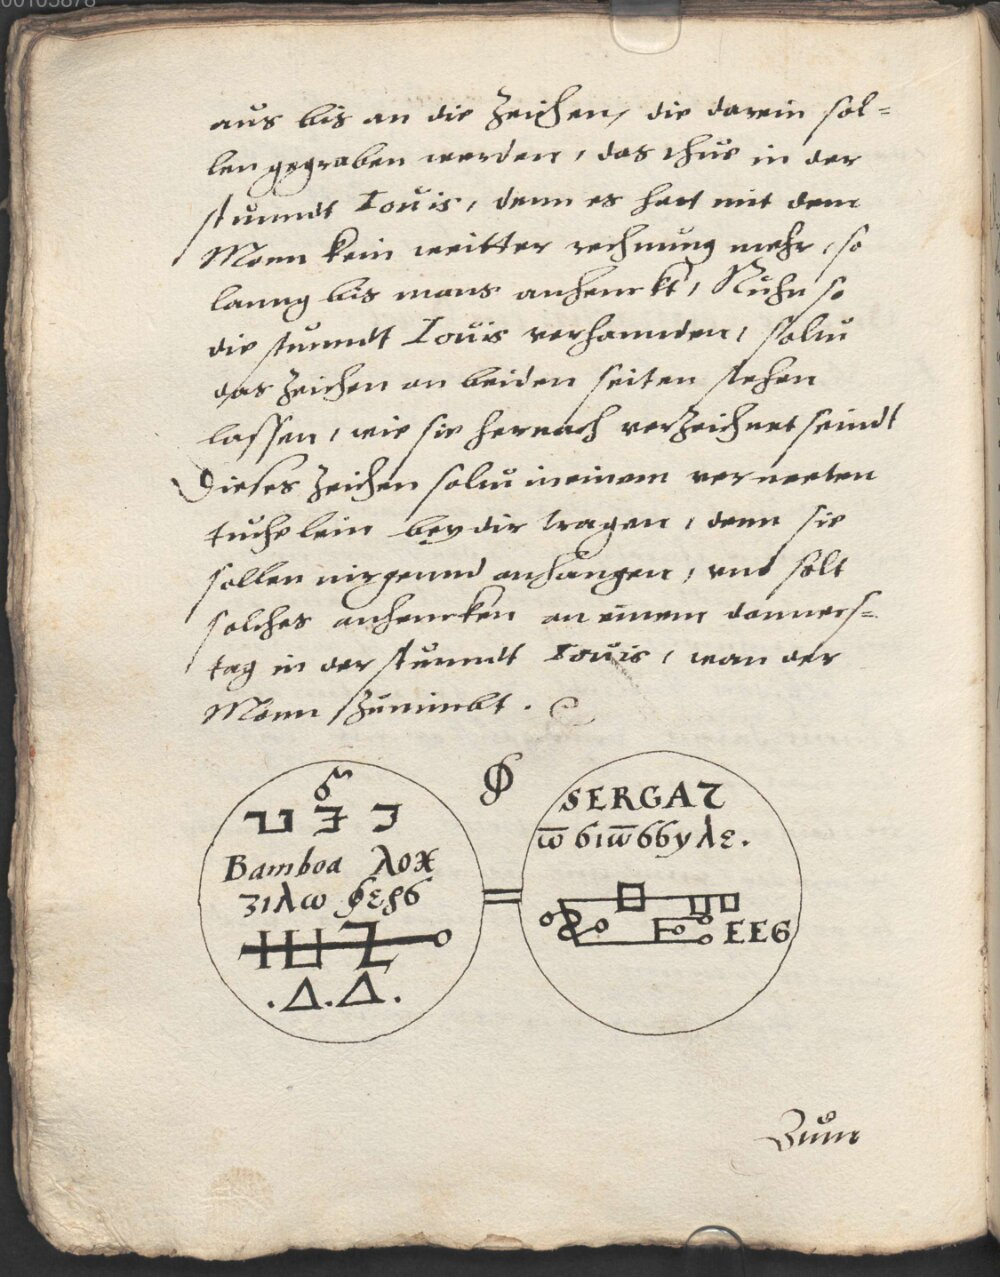 00105878
aus bis an die Zeichen, die darein sol=
len gegraben werden, das thue in der
stunndt Iouis, denn es hatt mit dem
Monn kein weitter rechnung mehr, so
lanng bis mans anhenckt, Nuhn so
die stunndt Iouis verhannden, soltu
das Zeichen an beiden seiten stehen
lassen, wie sie hernach verzeichnet seindt
Dieses Zeichen soltu in einem verneeten
tuchelein bey dir tragen, denn sie
sollen nirgennd anhangen, vnd solt
solches anhencken an einem donners=
tag in der stunndt Iouis, wan der
Monn Zunimbt.
Bamboa λοx
ζιλω
.Δ.Δ.
SERGAZ
ω̅ 6ιω̅66yλε.
EE6
Zum